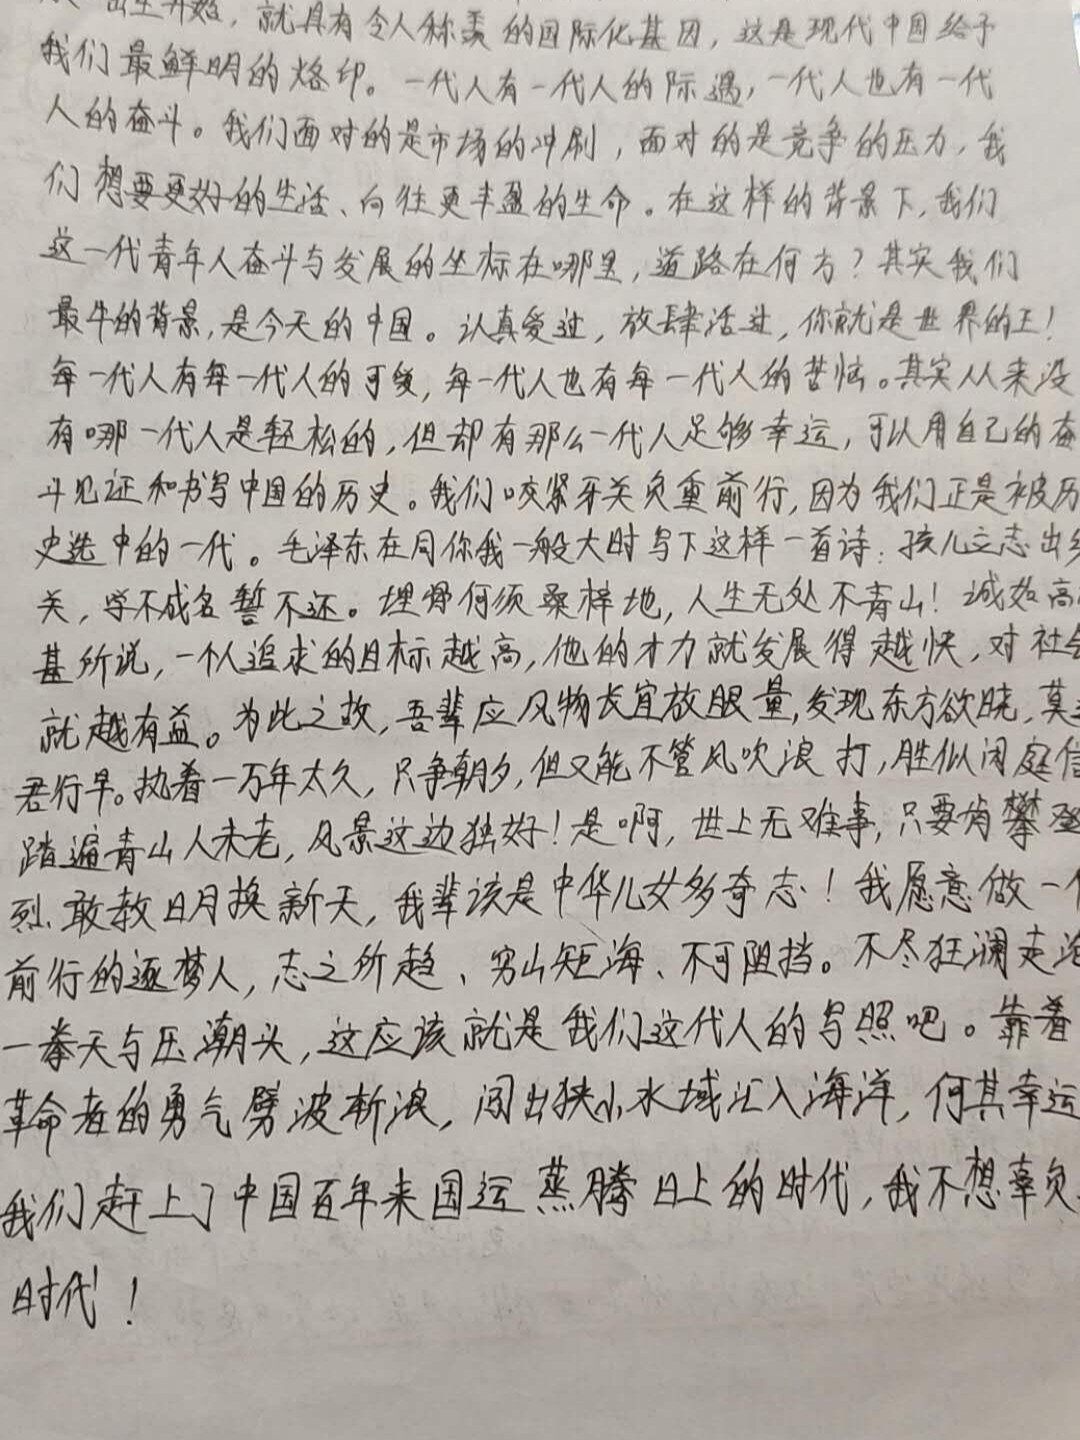 出生开始，就具有令人称羡的国际化基因，这是现代中国给予
我们最鲜明的烙印。一代人有一代人的际遇，一代人也有一代
人的奋斗。我们面对的是市场的冲刷，面对的是竞争的压力，我
们想要更好的生活、向往更丰盈的生命。在这样的背景下，我们
这一代青年人奋斗与发展的坐标在哪里，道路在何方？其实我们
最牛的背景，是今天的中国。认真爱过，放肆活过，你就是世界的王！
每一代人有每一代人的可爱，每一代人也有每一代人的苦恼。其实从来没
有哪一代人是轻松的，但却有那么一代人足够幸运，可以用自己的奋
斗见证和书写中国的历史。我们咬紧牙关负重前行，因为我们正是被历
史选中的一代。毛泽东在同你我一般大时写下这样一首诗：孩儿立志出乡
关，学不成名誓不还。埋骨何须桑梓地，人生无处不青山！诚如高
甚所说，一个人追求的目标越高，他的才力就发展得越快，对社会
就越有益。为此之故，吾辈应风物长宜放眼量，发现东方欲晓，莫
君行早。执着一万年太久，只争朝夕，但又能不管风吹浪打，胜似闲庭信
踏遍青山人未老，风景这边独好！是啊，世上无难事，只要肯攀登
烈、敢教日月换新天，我辈该是中华儿女多奇志！我愿意做一个
前行的逐梦人，志之所趋、穷山距海、不可阻挡。不尽狂澜走沧
一拳天与压潮头，这应该就是我们这代人的写照吧。靠着
革命者的勇气劈波斩浪，闯出狭小水域汇入海洋，何其幸运
我们赶上了中国百年来国运蒸腾日上的时代，我不想辜负
时代！